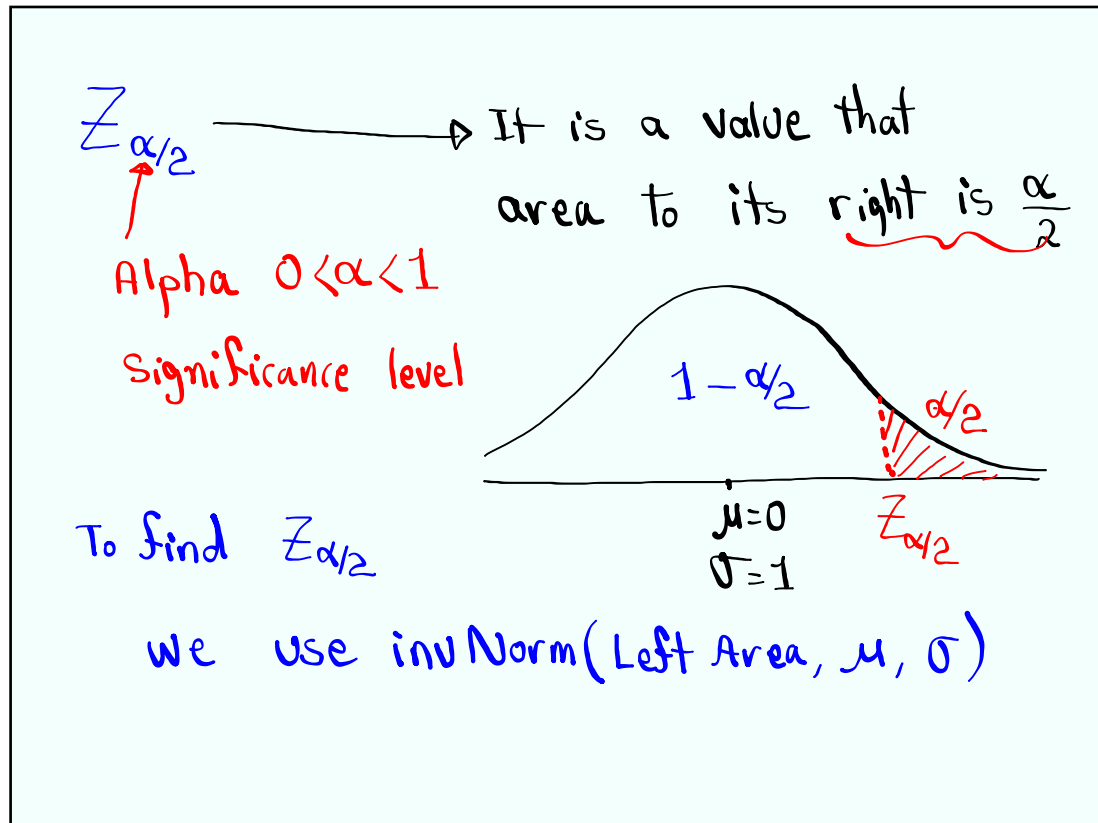 Z α/2 → It is a value that
area to its right is α/2
Alpha 0<α<1
Significance level
1 - α/2
α/2
μ=0
σ=1
Z α/2
To find Z α/2
we use invNorm(Left Area, μ, σ)